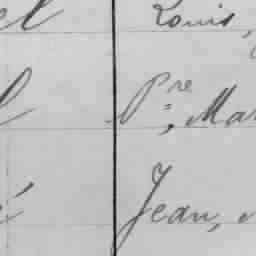 el Louis,
l Pre, Mar
é Jean,